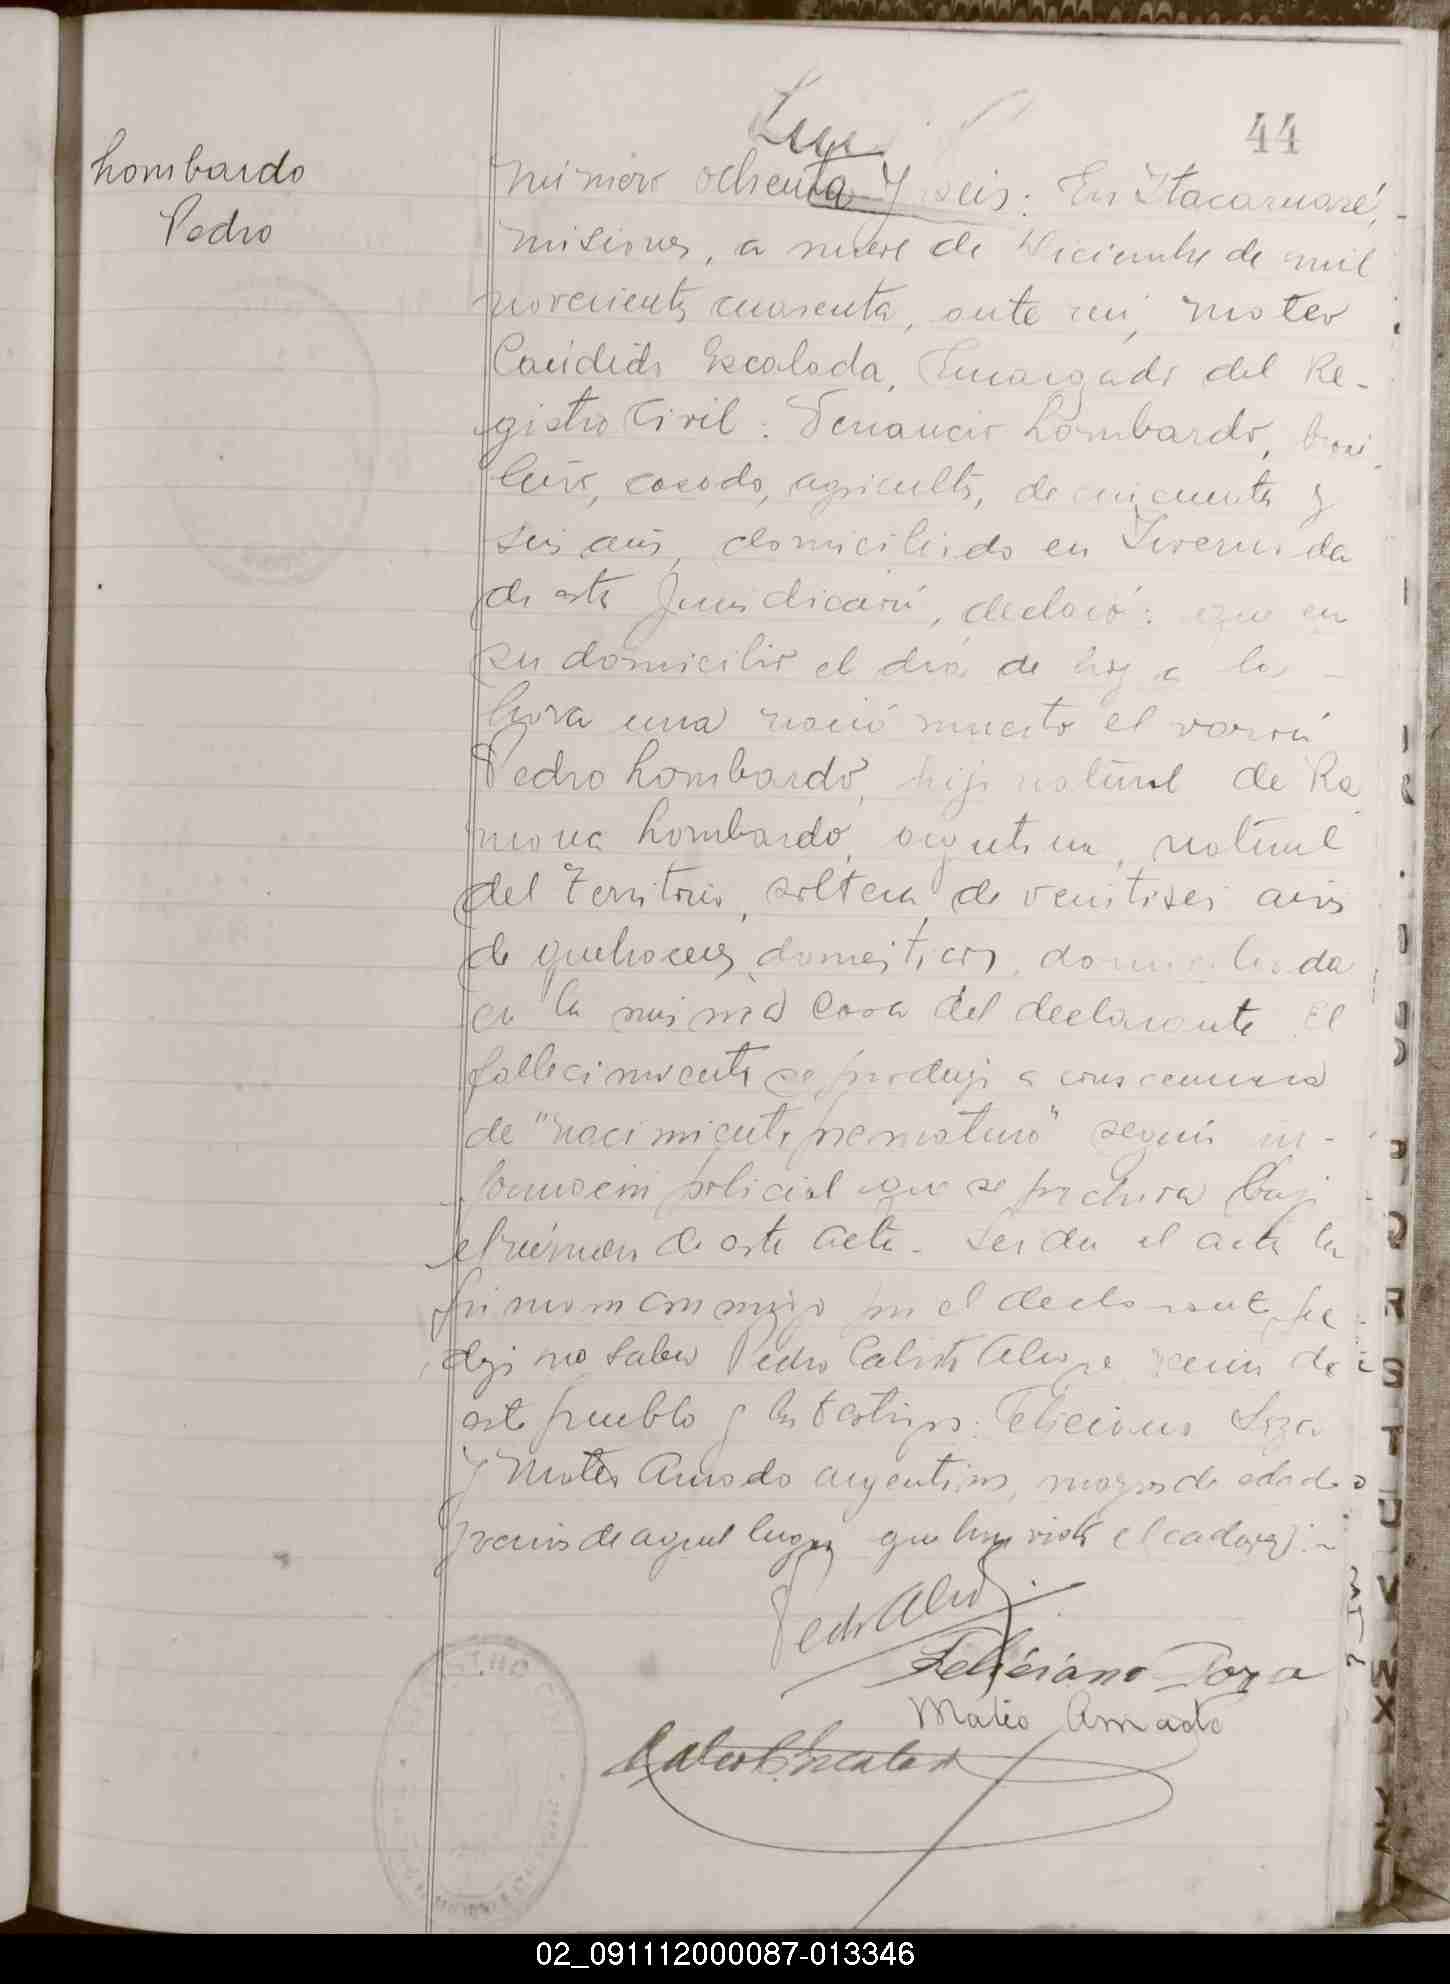 44
Lombardo
Pedro
Número ochenta y seis: En Itacaruaré,
Misiones, a nueve de Diciembre de mil
novecientos cuarenta, ante mi, Mateo
Candido Escalada, Encargado del Re-
gistro Civil: Venancio Lombardo, brasi
leño, casado, agricultor, de cincuenta y
seis años, domiciliado en
de esta Jurisdicción, declaró: que en
su domicilio el día de hoy a la
hora una nació muerto el varón
Pedro Lombardo, hijo natural de Ra
mona Lombardo, argentina, natural
del Territorio, soltera, de veintiseis años
de quehaceres domesticos, domiciliada
en la misma casa del declarante. El
fallecimiento se produjo a consecuencia
de "nacimiento prematuro" según in-
formación policial que se archiva bajo
el número de esta acta. Leida el acta la
firmaron conmigo por el declarante, que
dijo no saber Pedro vecino de
este pueblo y los testigos: Feliciano
y Mateo Amado argentinos, mayores de edad
vecinos de aquel lugar que han visto el cadaver:-
Feliciano
Mateo Amado
Mateo C. Escalada
02_091112000087-013346